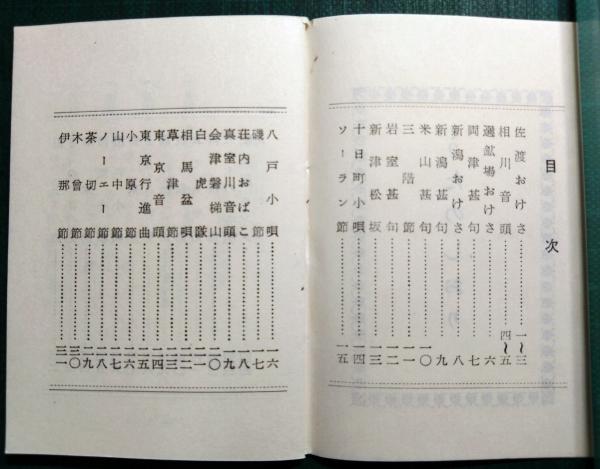 目次
佐渡おけさ……………一〜三
相川音頭……………四〜五
選鉱場おけさ……………六
両津甚句……………七
新潟おけさ……………八
新潟甚句……………九
米山甚句……………一〇
三階節……………一一
岩室甚句……………一二
新津松坂……………一三
十日町小唄……………一四
ソーラン節……………一五
八戸小唄……………一六
磯節……………一七
荘内おばこ……………一八
真室川音頭……………一九
会津磐梯山……………二〇
白虎隊……………二一
相馬盆唄……………二二
草津節……………二三
東京音頭……………二四
東京行進曲……………二五
小原節……………二六
山中節……………二七
ノーエー節……………二八
茶切節……………二九
木曾節……………三〇
伊那節……………三一